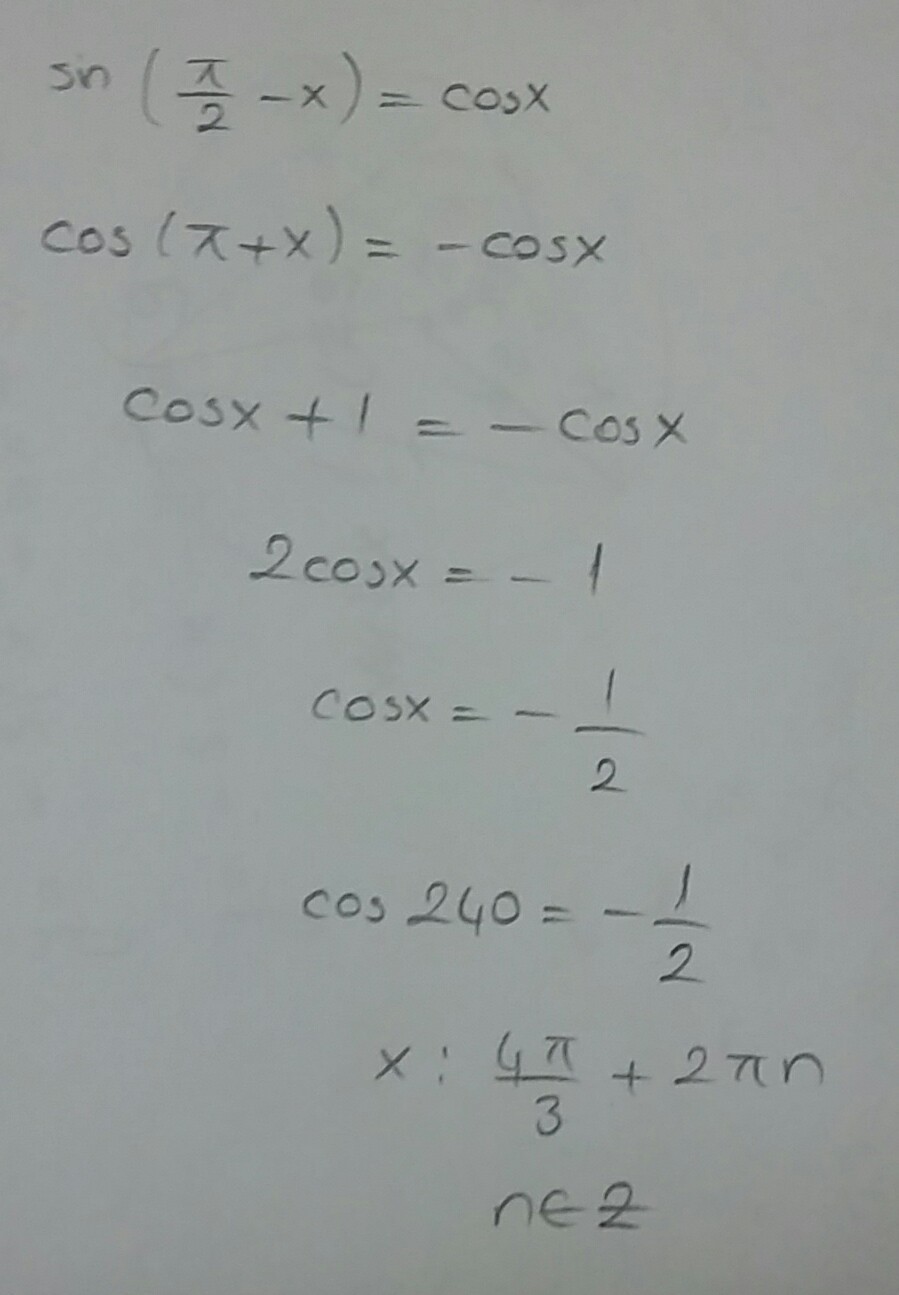 sin (π/2 - x) = cosx
cos (π+x) = -cosx
cosx + 1 = - cosx
2cosx = - 1
cosx = - 1/2
cos 240 = - 1/2
x : 4π/3 + 2πn
n∈Z